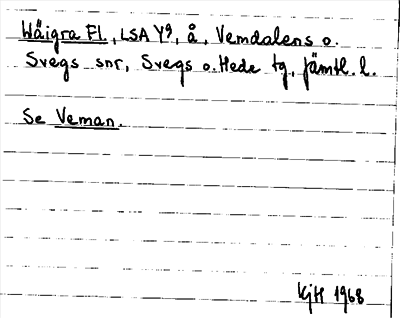 Wäigra El., LSA Y9, å, Vemdalens o.
Svegs snr, Svegs o. Hede tg, Jämtl. l.
Se Veman.
KjH 1968